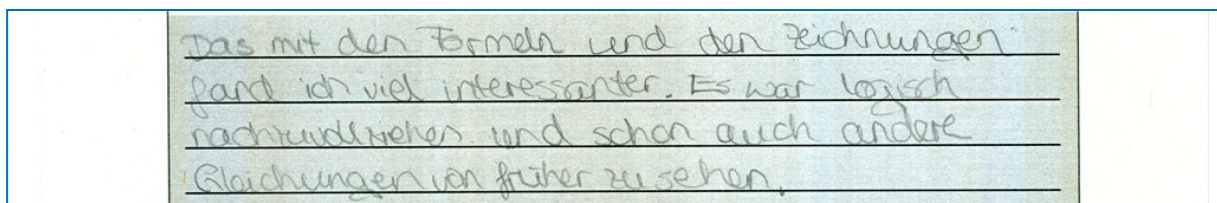 Das mit den Formeln und den Zeichnungen
fand ich viel interessanter. Es war logisch
nachzuvollziehen und schon auch andere
Gleichungen von früher zu sehen.